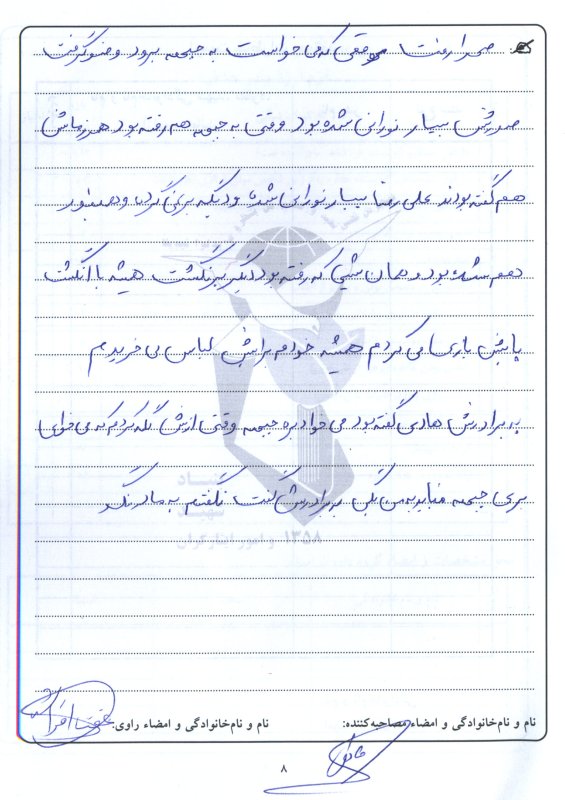 صحرا رفت وقتی که می خواست به جبهه برود وضو گرفت
صورتش بسیار نورانی شده بود وقتی به جبهه هم رفته بود همرزمانش
هم گفته بودند علی رضا بسیار نورانی شده و دیگه برنمی گرده و همینطور
هم شده بود و همان شبی که رفته بود دیگر برنگشت همیشه با انگشت
پایش بازی می کردم همیشه خودم برایش لباس می خریدم
به برادرش هادی گفته بود می خواد بره جبهه وقتی ازش گله کردم که می خوای
بری جبهه نباید به من بگی به برادرش گفت نگفتم به مادر نگو
بنیاد
شهید
۱۳۵۸
و امور ایثارگران
نام و نام‌خانوادگی و امضاء مصاحبه‌کننده:
نام و نام‌خانوادگی و امضاء راوی:
۸